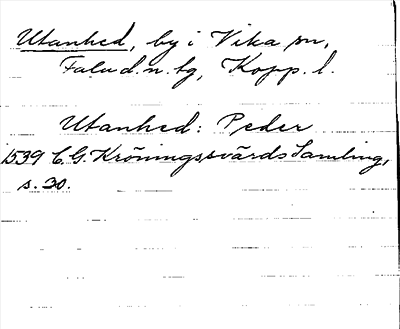 Utanhed, by i Vika sn,
Falu d.n. tg, Kopp. l.
Utanhed: Peder
1539 C.G. Kröningssvärds Samling,
s. 30.